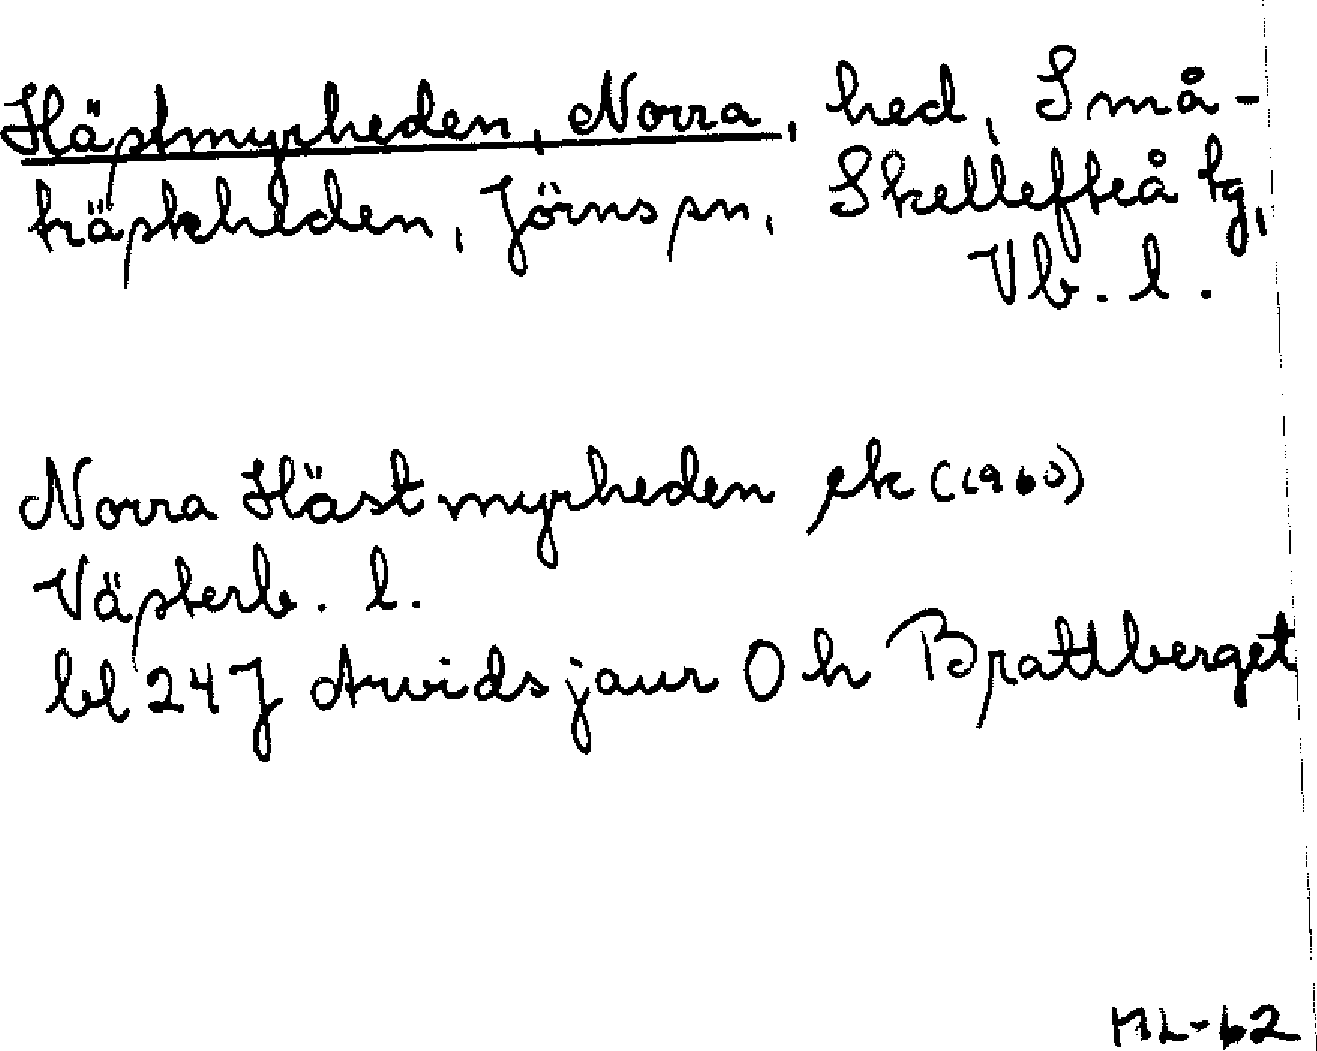 Hästmyrheden, Norra, hed, Små-
träskheden, Jörns sn, Skellefteå tg,
Vb. l.
Norra Hästmyrheden ek (1960)
Västerb. l.
bl 24 J Arvidsjaur O h Brattberget
ML-62